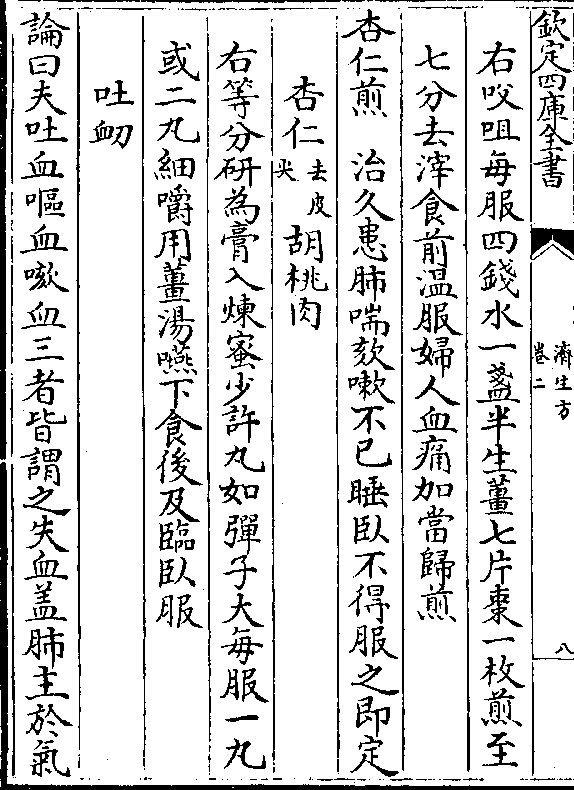 欽定四庫全書
濟生方
卷二
八
右㕮咀每服四錢水一盞半生薑七片棗一枚煎至
七分去滓食前温服婦人血痛加當歸煎
杏仁煎　治久患肺喘欬嗽不已睡臥不得服之即定
杏仁去皮尖　胡桃肉
右等分研為膏入煉蜜少許丸如彈子大每服一丸
或二丸細嚼用薑湯嚥下食後及臨臥服
吐衂
論曰夫吐血嘔血嗽血三者皆謂之失血盖肺主於氣